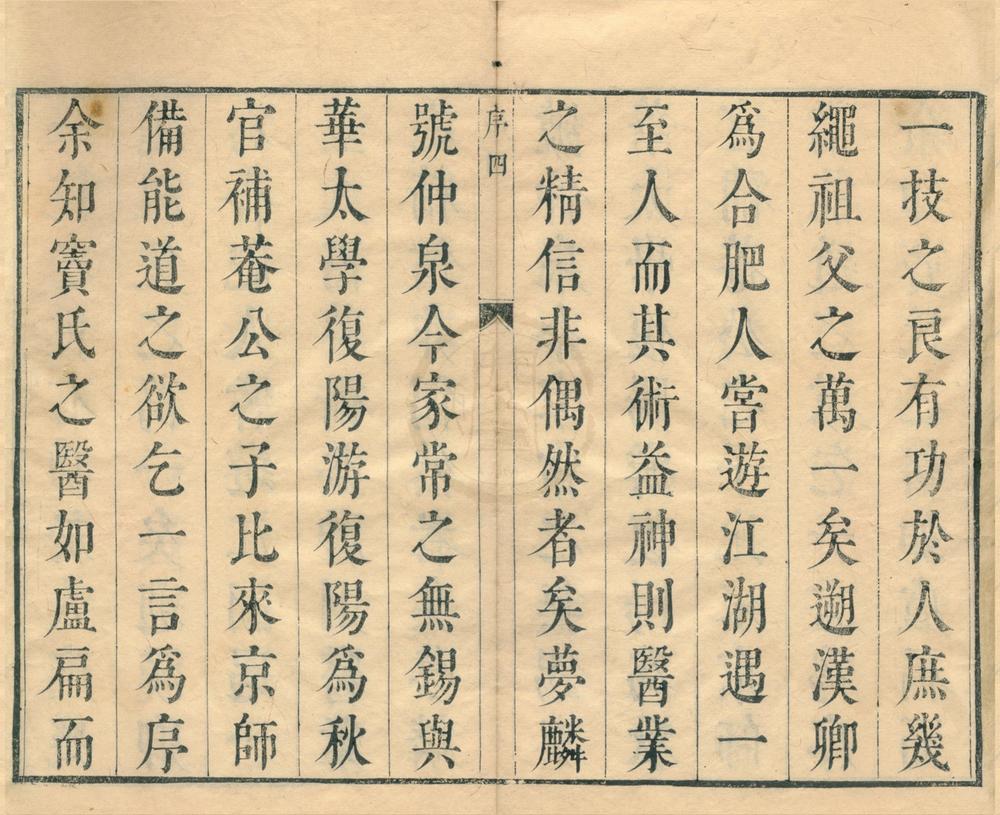 一技之良有功於人庶幾
繩祖父之萬一矣遡漢卿
爲合肥人嘗遊江湖遇一
至人而其術益神則醫業
之精信非偶然者矣夢麟
序四
號仲泉今家常之無錫與
華太學復陽游復陽爲秋
官補菴公之子比來京師
備能道之欲乞一言爲序
余知竇氏之醫如盧扁而